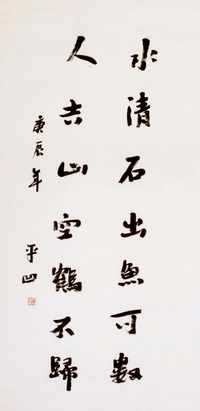 水清石出魚可數
人去山空鶴不歸
庚辰年
平凹